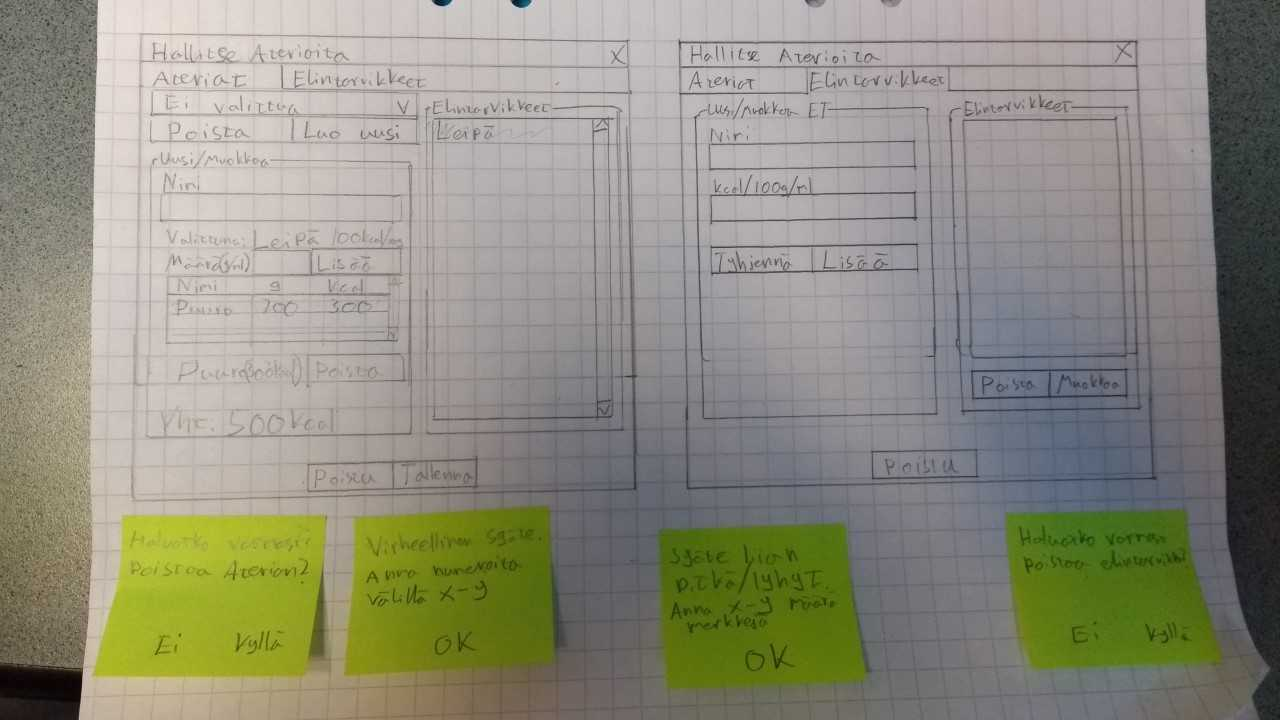 Hallitse Aterioita X
Ateriat Elintarvikkeet
Ei valittua V
Poista Luo uusi
Uusi/Muokkaa
Nimi
Valittuna: Leipä 100kcal/
Määrä(g/ml) Lisää
Nimi g kcal
Puuro 200 300
Puuro(300kcal) Poista
Yht: 500kcal
Elintarvikkeet
Leipä
Poistu Tallenna
Hallitse Aterioita X
Ateriat Elintarvikkeet
Uusi/Muokkaa ET
Nimi
kcal/100g/ml
Tyhjennä Lisää
Elintarvikkeet
Poista Muokkaa
Poistu
Haluatko varmasti
poistaa Aterian?
Ei Kyllä
Virheellinen syöte.
Anna numeroita
väliltä x-y
OK
Syöte liian
pitkä/lyhyt.
Anna x-y määrä
merkkejä
OK
Haluatko varmasti
poistaa elintarvikkeen?
Ei Kyllä